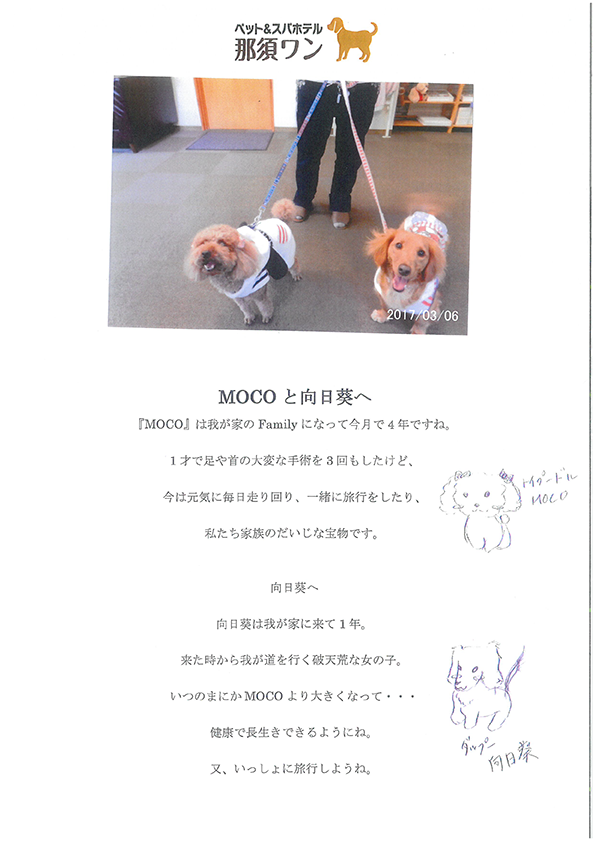 ペット&スパホテル
那須ワン
2017/03/06
MOCO と向日葵へ
『MOCO』は我が家の Family になって今月で 4 年ですね。
1 才で足や首の大変な手術を 3 回もしたけど、
今は元気に毎日走り回り、一緒に旅行をしたり、
私たち家族のだいじな宝物です。
トイプードル
MOCO
向日葵へ
向日葵は我が家に来て 1 年。
来た時から我が道を行く破天荒な女の子。
いつのまにか MOCO より大きくなって・・・
健康で長生きできるようにね。
又、いっしょに旅行しようね。
ダップー
向日葵